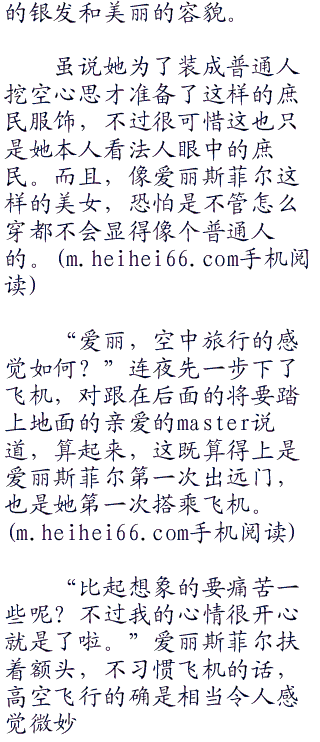 的银发和美丽的容貌。
虽说她为了装成普通人
挖空心思才准备了这样的庶
民服饰，不过很可惜这也只
是她本人看法人眼中的庶
民。而且，像爱丽斯菲尔这
样的美女，恐怕是不管怎么
穿都不会显得像个普通人
的。(m.heihei66.com手机阅
读)
“爱丽，空中旅行的感
觉如何？”连夜先一步下了
飞机，对跟在后面的将要踏
上地面的亲爱的master说
道，算起来，这既算得上是
爱丽斯菲尔第一次出远门，
也是她第一次搭乘飞机。
(m.heihei66.com手机阅读)
“比起想象的要痛苦一
些呢？不过我的心情很开心
就是了啦。”爱丽斯菲尔扶
着额头，不习惯飞机的话，
高空飞行的确是相当令人感
觉微妙